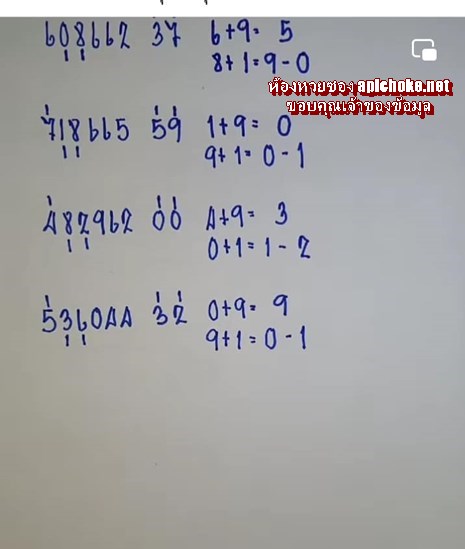 608662 37 6+9= 5
8+1=9-0
ห้องหวยซอง apichoke.net
ขอบคุณเจ้าของข้อมูล
718665 59 1+9= 0
9+1=0-1
482962 00 4+9= 3
0+1=1-2
536044 32 0+9= 9
9+1=0-1